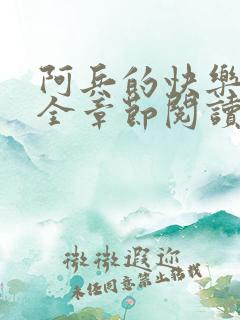 阿兵的快樂
全章節閱讀
微微遐迩
未经同意禁止转载